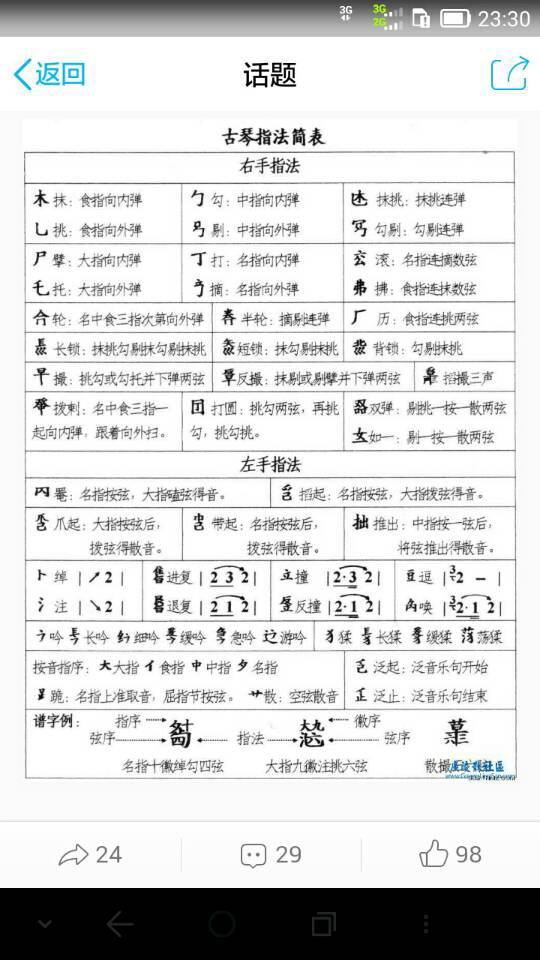 3G 3G 2G 23:30
返回 话题
古琴指法简表
右手指法
木 抹：食指向内弹
勹 勾：中指向内弹
抹挑：抹挑连弹
乚 挑：食指向外弹
剔：中指向外弹
勾剔：勾剔连弹
尸 擘：大指向内弹
丁 打：名指向内弹
滚：名指连摘数弦
乇 托：大指向外弹
摘：名指向外弹
弗 拂：食指连抹数弦
轮：名中食三指次第向外弹
半轮：摘剔连弹
厂 历：食指连挑两弦
长锁：抹挑勾剔抹勾剔抹挑
短锁：抹勾剔抹挑
背锁：勾剔抹挑
早 撮：挑勾或勾托并下弹两弦
反撮：抹剔或剔擘并下弹两弦
掐撮三声
拨刺：名中食三指一
起向内弹，跟着向外扫。
打圆：挑勾两弦，再挑
勾，挑勾挑。
双弹：剔挑一按一散两弦
女 如一：剔一按一散两弦
左手指法
罨：名指按弦，大指磕弦得音。
掐起：名指按弦，大指拨弦得音。
爪起：大指按弦后，
拨弦得散音。
带起：名指按弦后，
拨弦得散音。
推出：中指按一弦后，
将弦推出得散音。
卜 绰 | ↗2 |
进复 | 2 3 2 |
立 撞 | 2·3 2 |
豆 逗 | 2 – |
氵 注 | ↘2 |
退复 | 2 1 2 |
反撞 | 2·1 2 |
唤 | 2·1 2 |
吟 长吟 细吟 缓吟 急吟 游吟
犭 猱 长猱 缓猱 荡猱
按音指序：大 大指 亻 食指 中 中指 夕 名指
泛起：泛音乐句开始
跪：名指上准取音，屈指节按弦。 艹 散：空弦散音
正 泛止：泛音乐句结束
谱字例： 指序 徽序
弦序 指法 弦序
名指十徽绰勾四弦 大指九徽注挑六弦 散撮
24 29 98